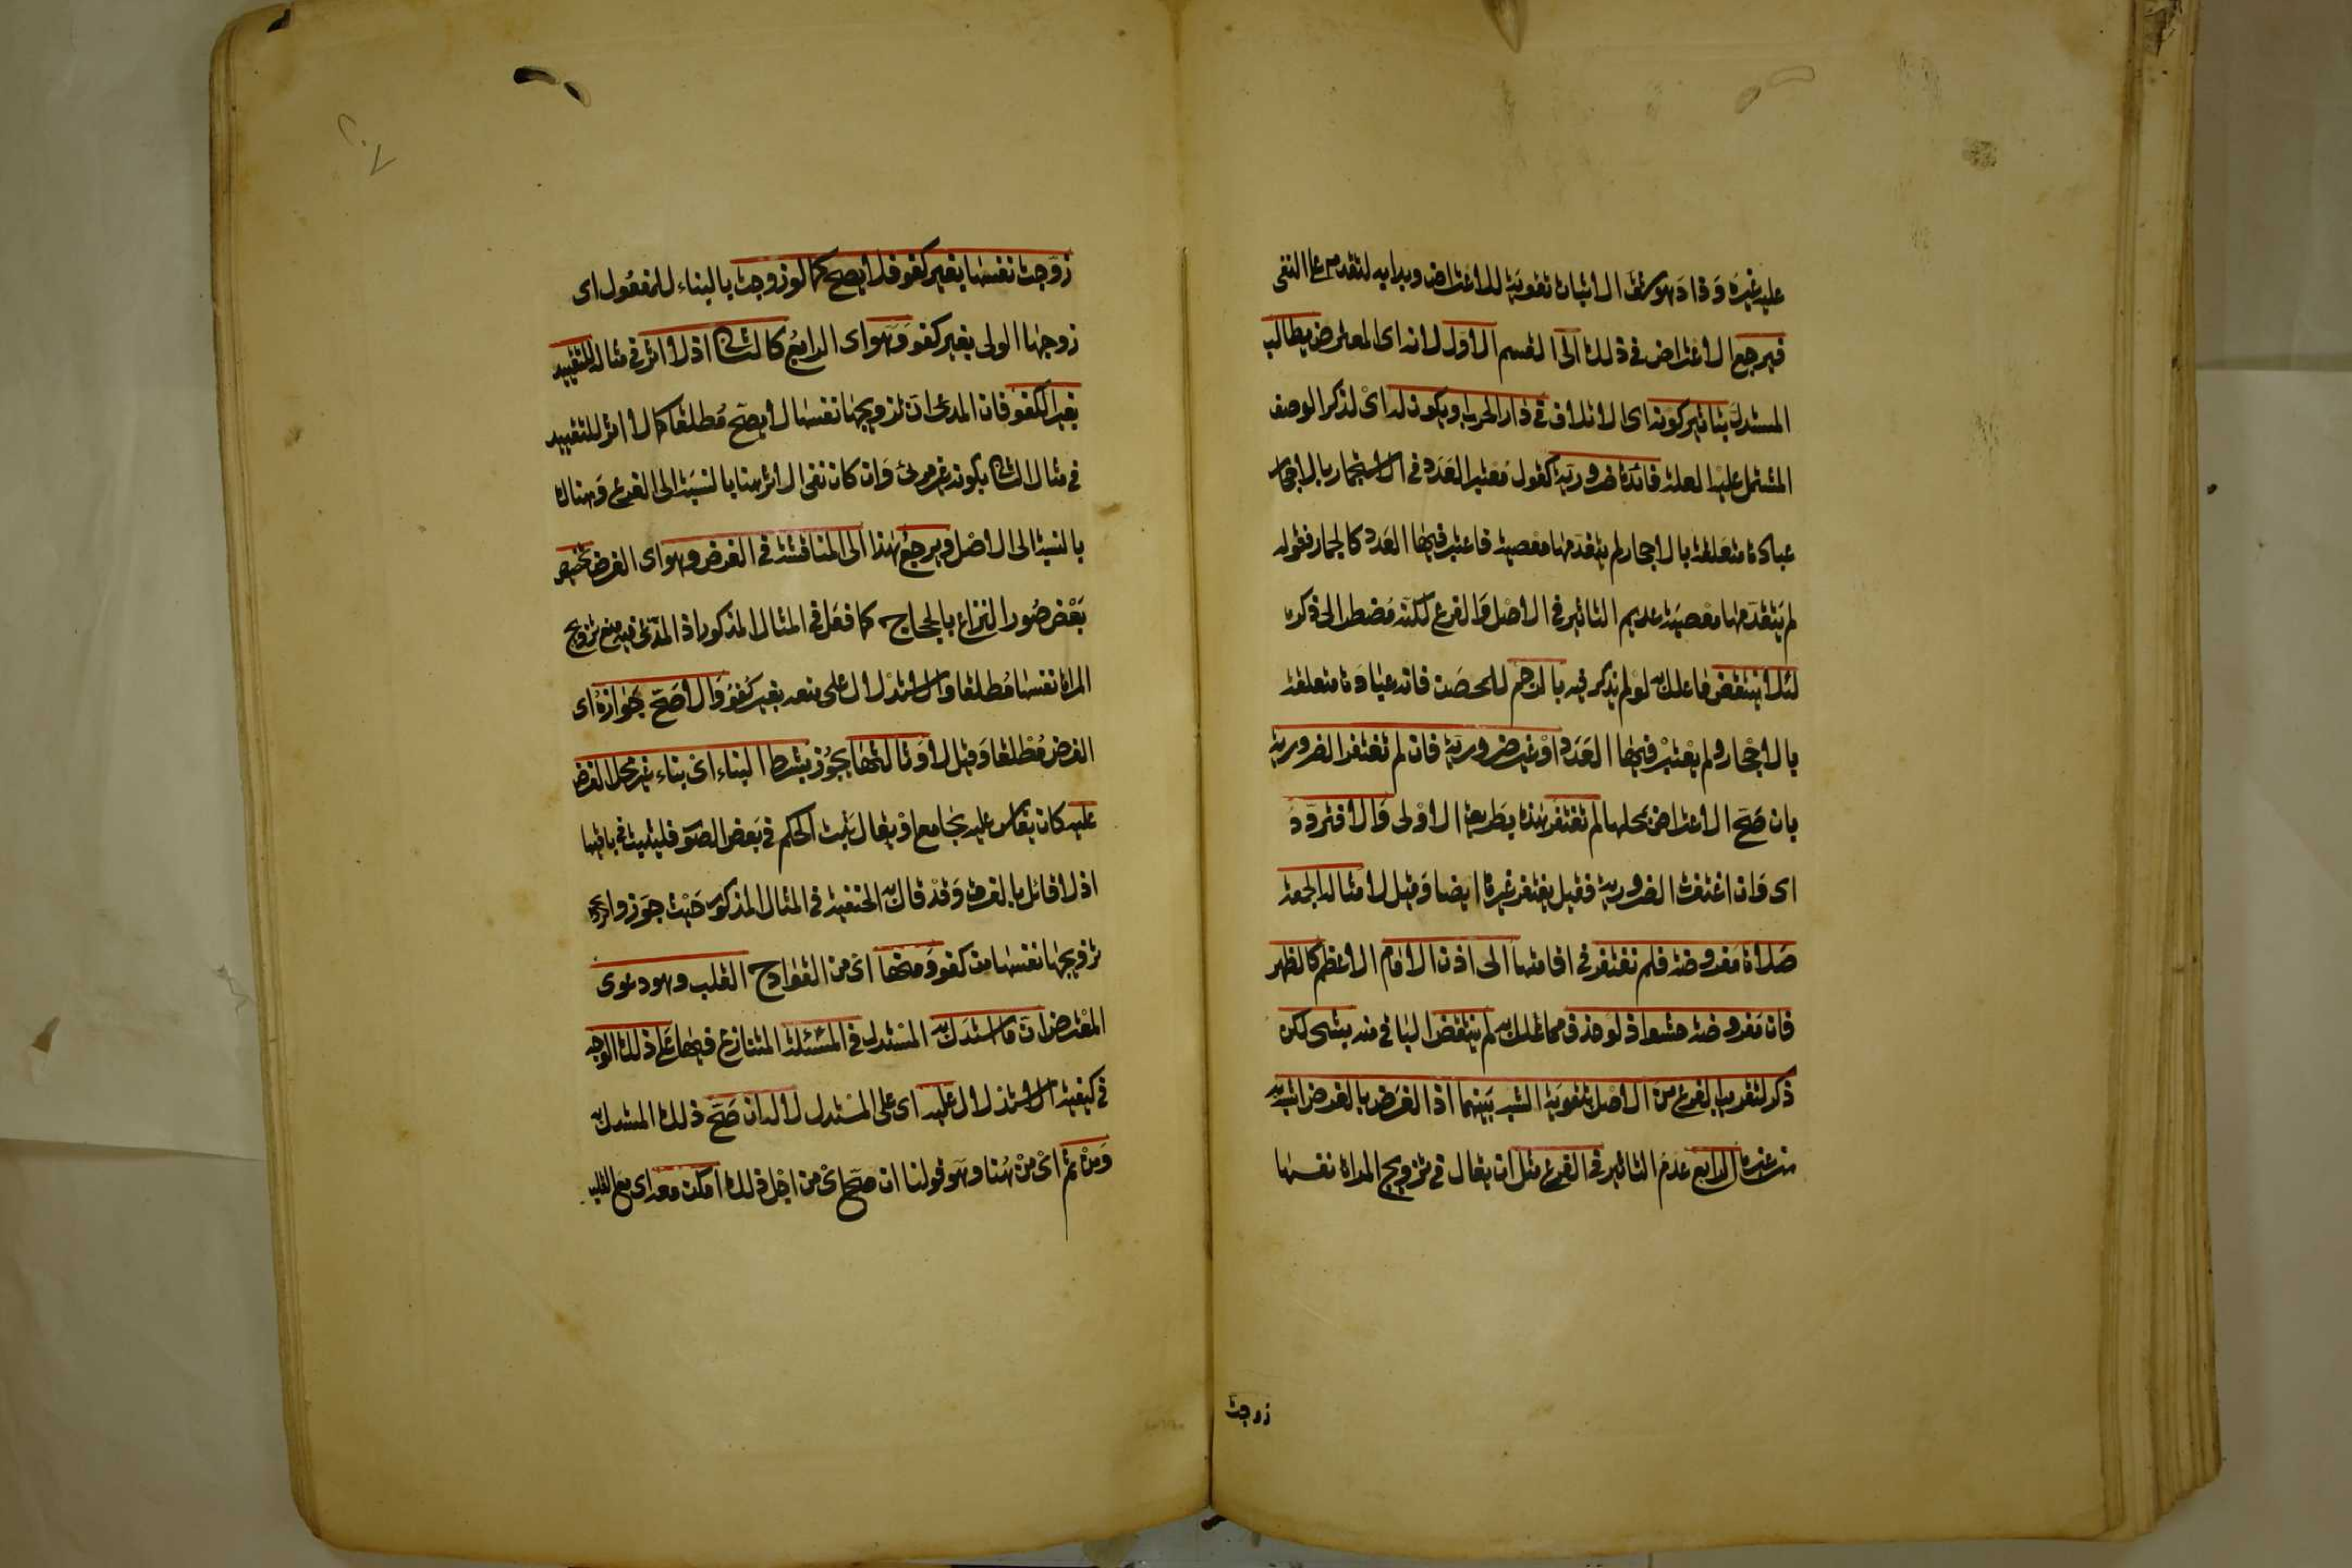 عليه غيره وزاد هو شق الاثبات تقوية للاعتراض وبدا به لتقدمه على النفى
فيرجع الاعتراض فى ذلك الى القسم الاول لانه اى المعترض يطالب
المستدل بتاثير كونه اى الاتلاف فى دار الحرب او يكون له اى لذكر الوصف
المشتمل عليه العلة فائدة ضرورية كقول معتبر العدد فى الاستجمار بالاحجار
عبادة متعلقة بالاحجار لم يتقدمها معصية فاعتبر فيها العدد كالجمار فقوله
لم يتقدمها معصية عديم التاثير فى الاصل والفرع لكنه مضطر الى ذكره
لئلا ينتقض ما علل به لو لم يذكر فيه بالرجم للمحصن فانه عبادة متعلقة
بالاحجار ولم يعتبر فيها العدد او غير ضرورية فان لم تغتفر الضرورية
بان صح الاعتراض بمحلها لم تغتفر هذه بطريقة الاولى والا فتردد
اى وان اغتفرت الضرورية فقيل يغتفر غيرها ايضا وقيل لا مثاله الجمعة
صلاة مفروضة فلم تفتقر فى اقامتها الى اذن الامام الاعظم كالظهر
فان مفروضة حشو اذ لو حذف مما علل به لم ينتقض الباقى منه بشئ لكن
ذكر لتقريب الفرع من الاصل بتقوية الشبه بينهما اذ الفرض بالفرض اشبه به
من غيره الرابع عدم التاثير فى الفرع مثل ان يقال فى تزويج المراة نفسها
زوجت
زوجت نفسها بغير كفو فلا يصح كما لو زوجت بالبناء للمفعول اى
زوجها الولى بغير كفو وهو اى الرابع كالثانى اذ لا اثر فى مثاله للتقييد
بغير الكفو فان المدعى ان تزويجها نفسها لا يصح مطلقا كما لا اثر للتقييد
فى مثال الثانى بكونه غير مرئى وان كان نفى الاثر هنا بالنسبة الى الفرع وهناك
بالنسبة الى الاصل ويرجع هذا الى المناقشة فى الفرض وهو اى الفرض تخصيص
بعض صور النزاع بالحجاج كما فعل فى المثال المذكور اذ المدعى فيه منع تزويج
المراة نفسها مطلقا والاستدلال على منعه بغير كفو والاصح جوازه اى
الفرض مطلقا وقيل لا وثالثها يجوز بشرط البناء اى بناء غير محل الفرض
عليه كان يقاس عليه بجامع او يقال ثبت الحكم فى بعض الصور فليثبت فى باقيها
اذ لا قائل بالفرق وقد قال به الحنفية فى المثال المذكور حيث جوزوا
تزويجها نفسها من كفو ومنها اى من القوادح القلب وهو دعوى
المعترض ان ما استدل به المستدل فى المسئلة المتنازع فيها على ذلك الوجه
فى كيفية الاستدلال عليه اى على المستدل لا له ان صح ذلك المستدل به
ومن ثم اى من هنا وهو قولنا ان صح اى من اجل ذلك امكن معه اى مع القلب